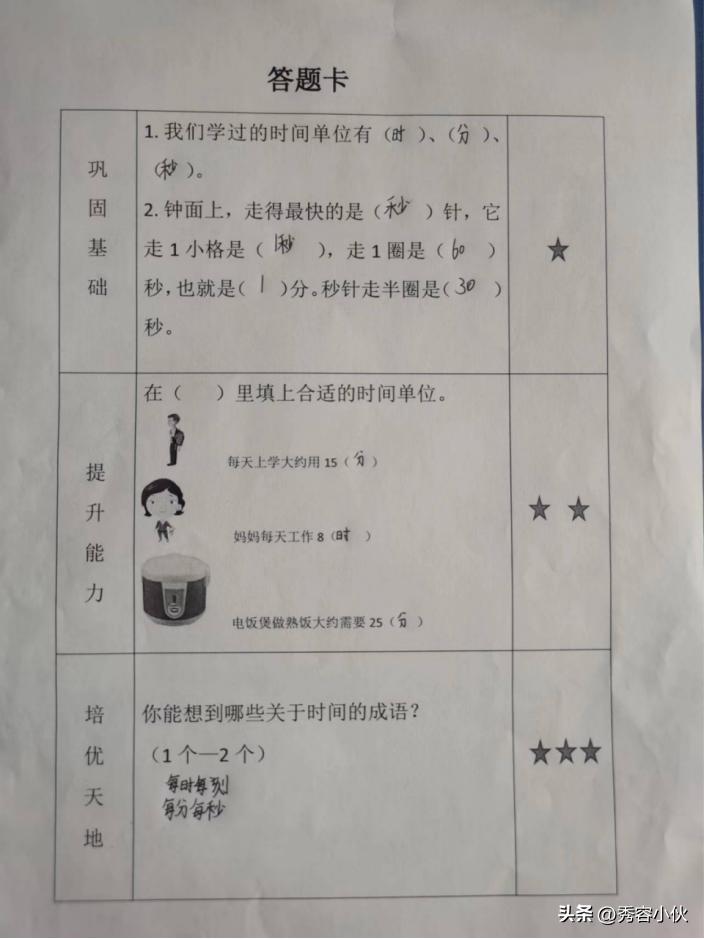 答题卡
巩固基础
1. 我们学过的时间单位有（时）、（分）、
（秒）。
2. 钟面上，走得最快的是（秒）针，它
走1小格是（1秒），走1圈是（60）
秒，也就是（1）分。秒针走半圈是（30）
秒。
提升能力
在（ ）里填上合适的时间单位。
每天上学大约用15（分）
妈妈每天工作8（时）
电饭煲做熟饭大约需要25（分）
培优天地
你能想到哪些关于时间的成语？
（1个—2个）
每时每刻
每分每秒
头条 @秀容小伙